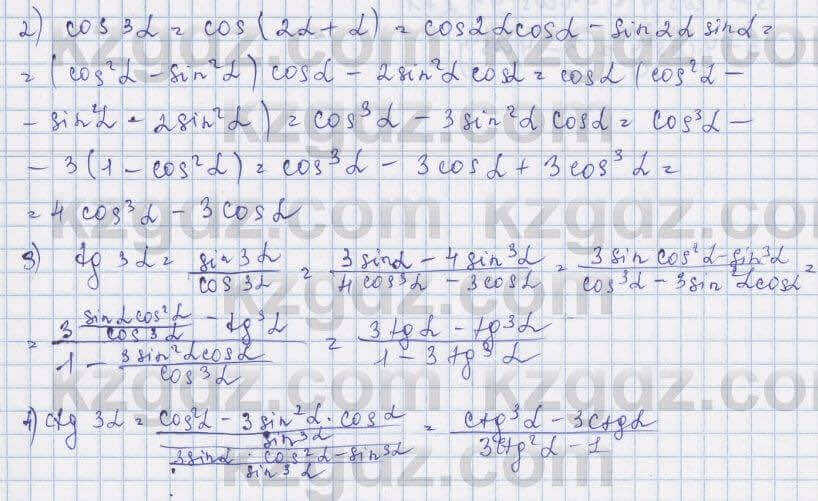 2) cos 3α = cos (2α + α) = cos2αcosα − sin2α sinα =
= (cos²α − sin²α) cosα − 2sin²α cosα = cosα (cos²α −
− sin²α − 2sin²α) = cos³α − 3sin²α cosα = cos³α −
− 3(1 − cos²α) = cos³α − 3cosα + 3cos³α =
= 4 cos³α − 3cosα
3) tg 3α = sin 3α / cos 3α = (3sinα − 4sin³α) / (4cos³α − 3cosα) = (3sin cos²α − sin³α) / (cos³α − 3sin²αcosα) =
= (3 (sinαcos²α / cos³α) − tg³α) / (1 − 3sin²αcosα / cos³α) = (3tgα − tg³α) / (1 − 3tg³α)
4) ctg 3α = ((cos²α − 3sin²α · cosα) / sin³α) / ((3sinα · cos²α − sin³α) / sin³α) = (ctg³α − 3ctgα) / (3ctg²α − 1)
kzgdz.com